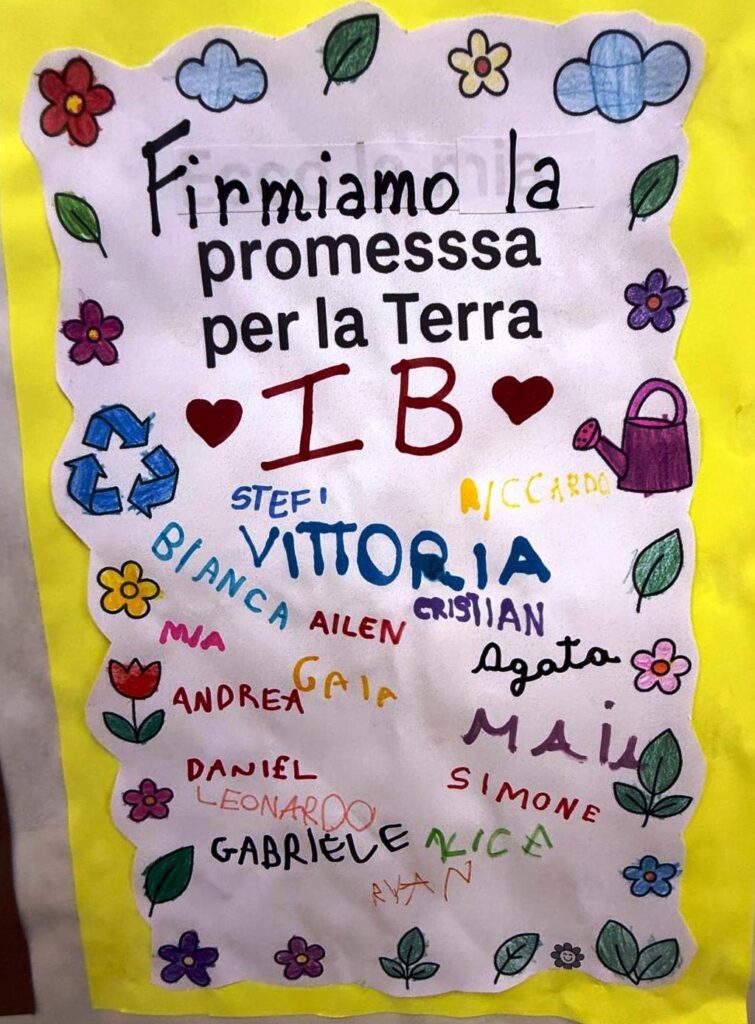 Firmiamo la
promesssa
per la Terra
I B
STEFI
RICCARDO
VITTORIA
BIANCA
CRISTIAN
AILEN
MIA
Agata
GAIA
ANDREA
MAIA
DANIEL
SIMONE
LEONARDO
GABRIELE
ALICE
RYAN